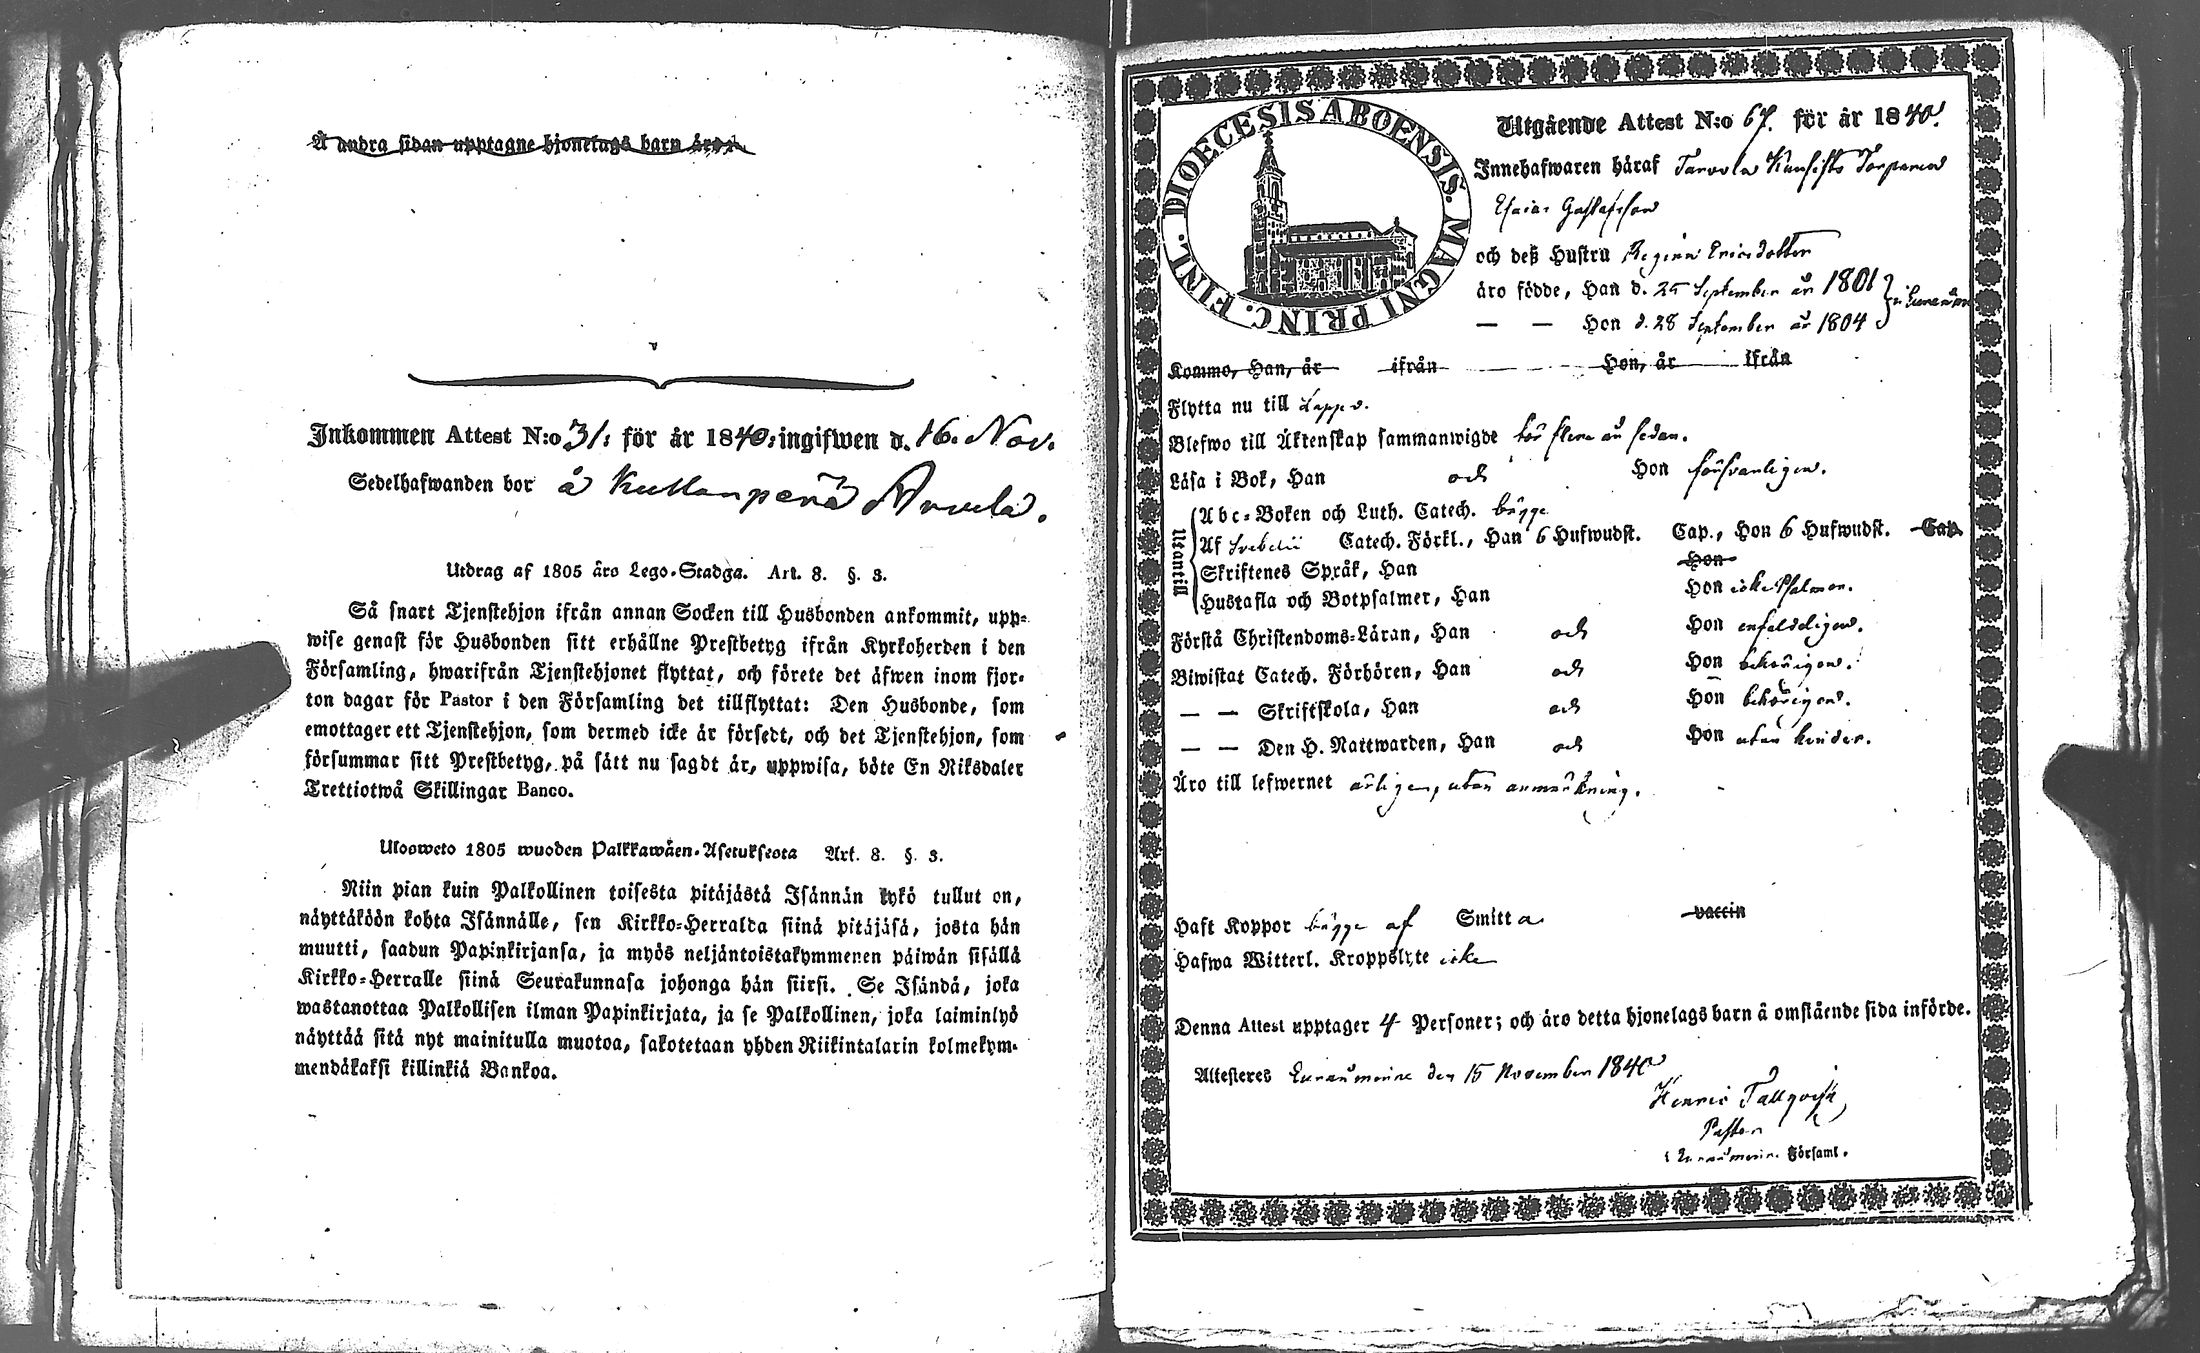 Å andra sidan upptagne hjonelags barn äro:
Inkommen Attest N:o 31: för år 1840: ingifwen d. 16. Nov.
Sedelhafwanden bor å Kullanperä Anvela.
Utdrag af 1805 års Lego-Stadga. Art. 8. §. 3.
Så snart Tjenstehjon ifrån annan Socken till Husbonden ankommit, upp-
wise genast för Husbonden sitt erhållne Prestbetyg ifrån Kyrkoherden i den
Församling, hwarifrån Tjenstehjonet flyttat, och förete det äfwen inom fjor-
ton dagar för Pastor i den Församling det tillflyttat: Den Husbonde, som
emottager ett Tjenstehjon, som dermed icke är försedt, och det Tjenstehjon, som
försummar sitt Prestbetyg, på sätt nu sagdt är, uppwisa, böte En Riksdaler
Trettiotwå Skillingar Banco.
Ulosweto 1805 wuoden Palkkawäen-Asetuksesta Art. 8. §. 3.
Niin pian kuin Palkollinen toisesta pitäjästä Isännän tykö tullut on,
näyttäköön kohta Isännälle, sen Kirkko-Herralda siinä pitäjäsä, josta hän
muutti, saadun Papinkirjansa, ja myös neljäntoistakymmenen päiwän sisällä
Kirkko-Herralle siinä Seurakunnasa johonga hän siirsi. Se Isändä, joka
wastanottaa Palkollisen ilman Papinkirjata, ja se Palkollinen, joka laiminlyö
näyttää sitä nyt mainitulla muotoa, sakotetaan yhden Riikintalarin kolmekym-
mendäkaksi killinkiä Bankoa.
DIOECESIS ABOENSIS. MAGNI PRINC. FINL.
Utgående Attest N:o 67. för år 1840.
Innehafwaren häraf Tarvola Torparen
Esaias Gustafsson
och deß Hustru Regina Ericsdotter
äro födde, Han d. 25 September år 1801
— — Hon d. 28 September år 1804
Kommo, Han, år ifrån Hon, år ifrån
Flytta nu till Lappo.
Blefwo till Äktenskap sammanwigde för flera år sedan.
Läsa i Bok, Han och Hon försvarligen.
Utantill
Abc-Boken och Luth. Catech. bägge
Af Svebelii Catech. Förkl., Han 6 Hufwudst. Cap., Hon 6 Hufwudst. Cap.
Skriftenes Språk, Han Hon
Hustafla och Botpsalmer, Han Hon icke Psalmen.
Förstå Christendoms-Läran, Han och Hon enfaldeligen.
Biwistat Catech. Förhören, Han och Hon behörigen.
— — Skriftskola, Han och Hon behörigen.
— — Den H. Nattwarden, Han och Hon utan hinder.
Äro till lefwernet ärligen, utan anmärkning.
Haft Koppor bägge af Smitta vaccin
Hafwa Witterl. Kroppslyte icke
Denna Attest upptager 4 Personer; och äro detta hjonelags barn å omstående sida införde.
Attesteres Euraåminne den 15 November 1840
Henric Tallqvist
Pastor
i Euraåminne Församl.